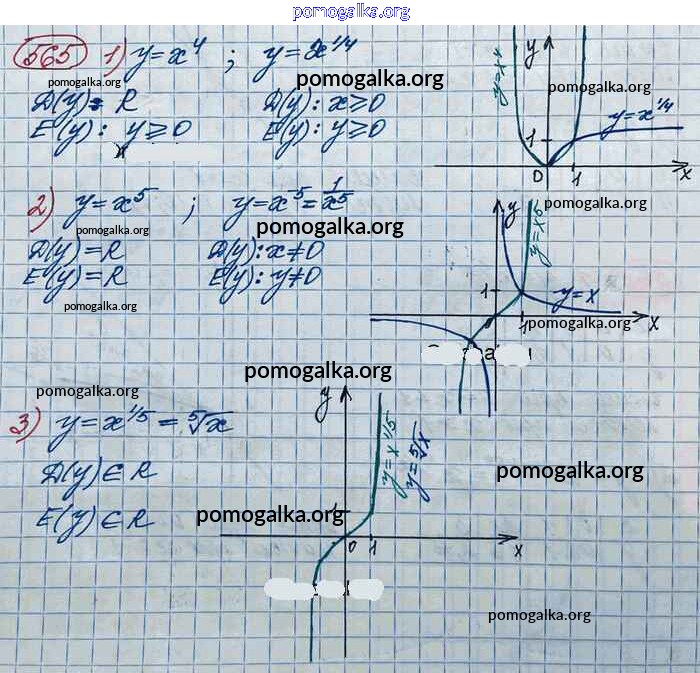 pomogalka.org
565 1) y=x⁴ ; y=x^1/4
pomogalka.org
pomogalka.org
pomogalka.org
D(y)=R D(y): x≥0
E(y): y≥0 E(y): y≥0
y
y=x⁴
y=x^1/4
1
0 1 x
2) y=x⁵ ; y=x⁻⁵=1/x⁵
pomogalka.org
pomogalka.org
pomogalka.org
D(y)=R D(y): x≠0
E(y)=R E(y): y≠0
pomogalka.org
y
y=x5
1
y=x
1 x
pomogalka.org
pomogalka.org
pomogalka.org
3) y=x^1/5=⁵√x
D(y)∈R
E(y)∈R
y
y=x^1/5
y=5√x
1
0 1 x
pomogalka.org
pomogalka.org
pomogalka.org